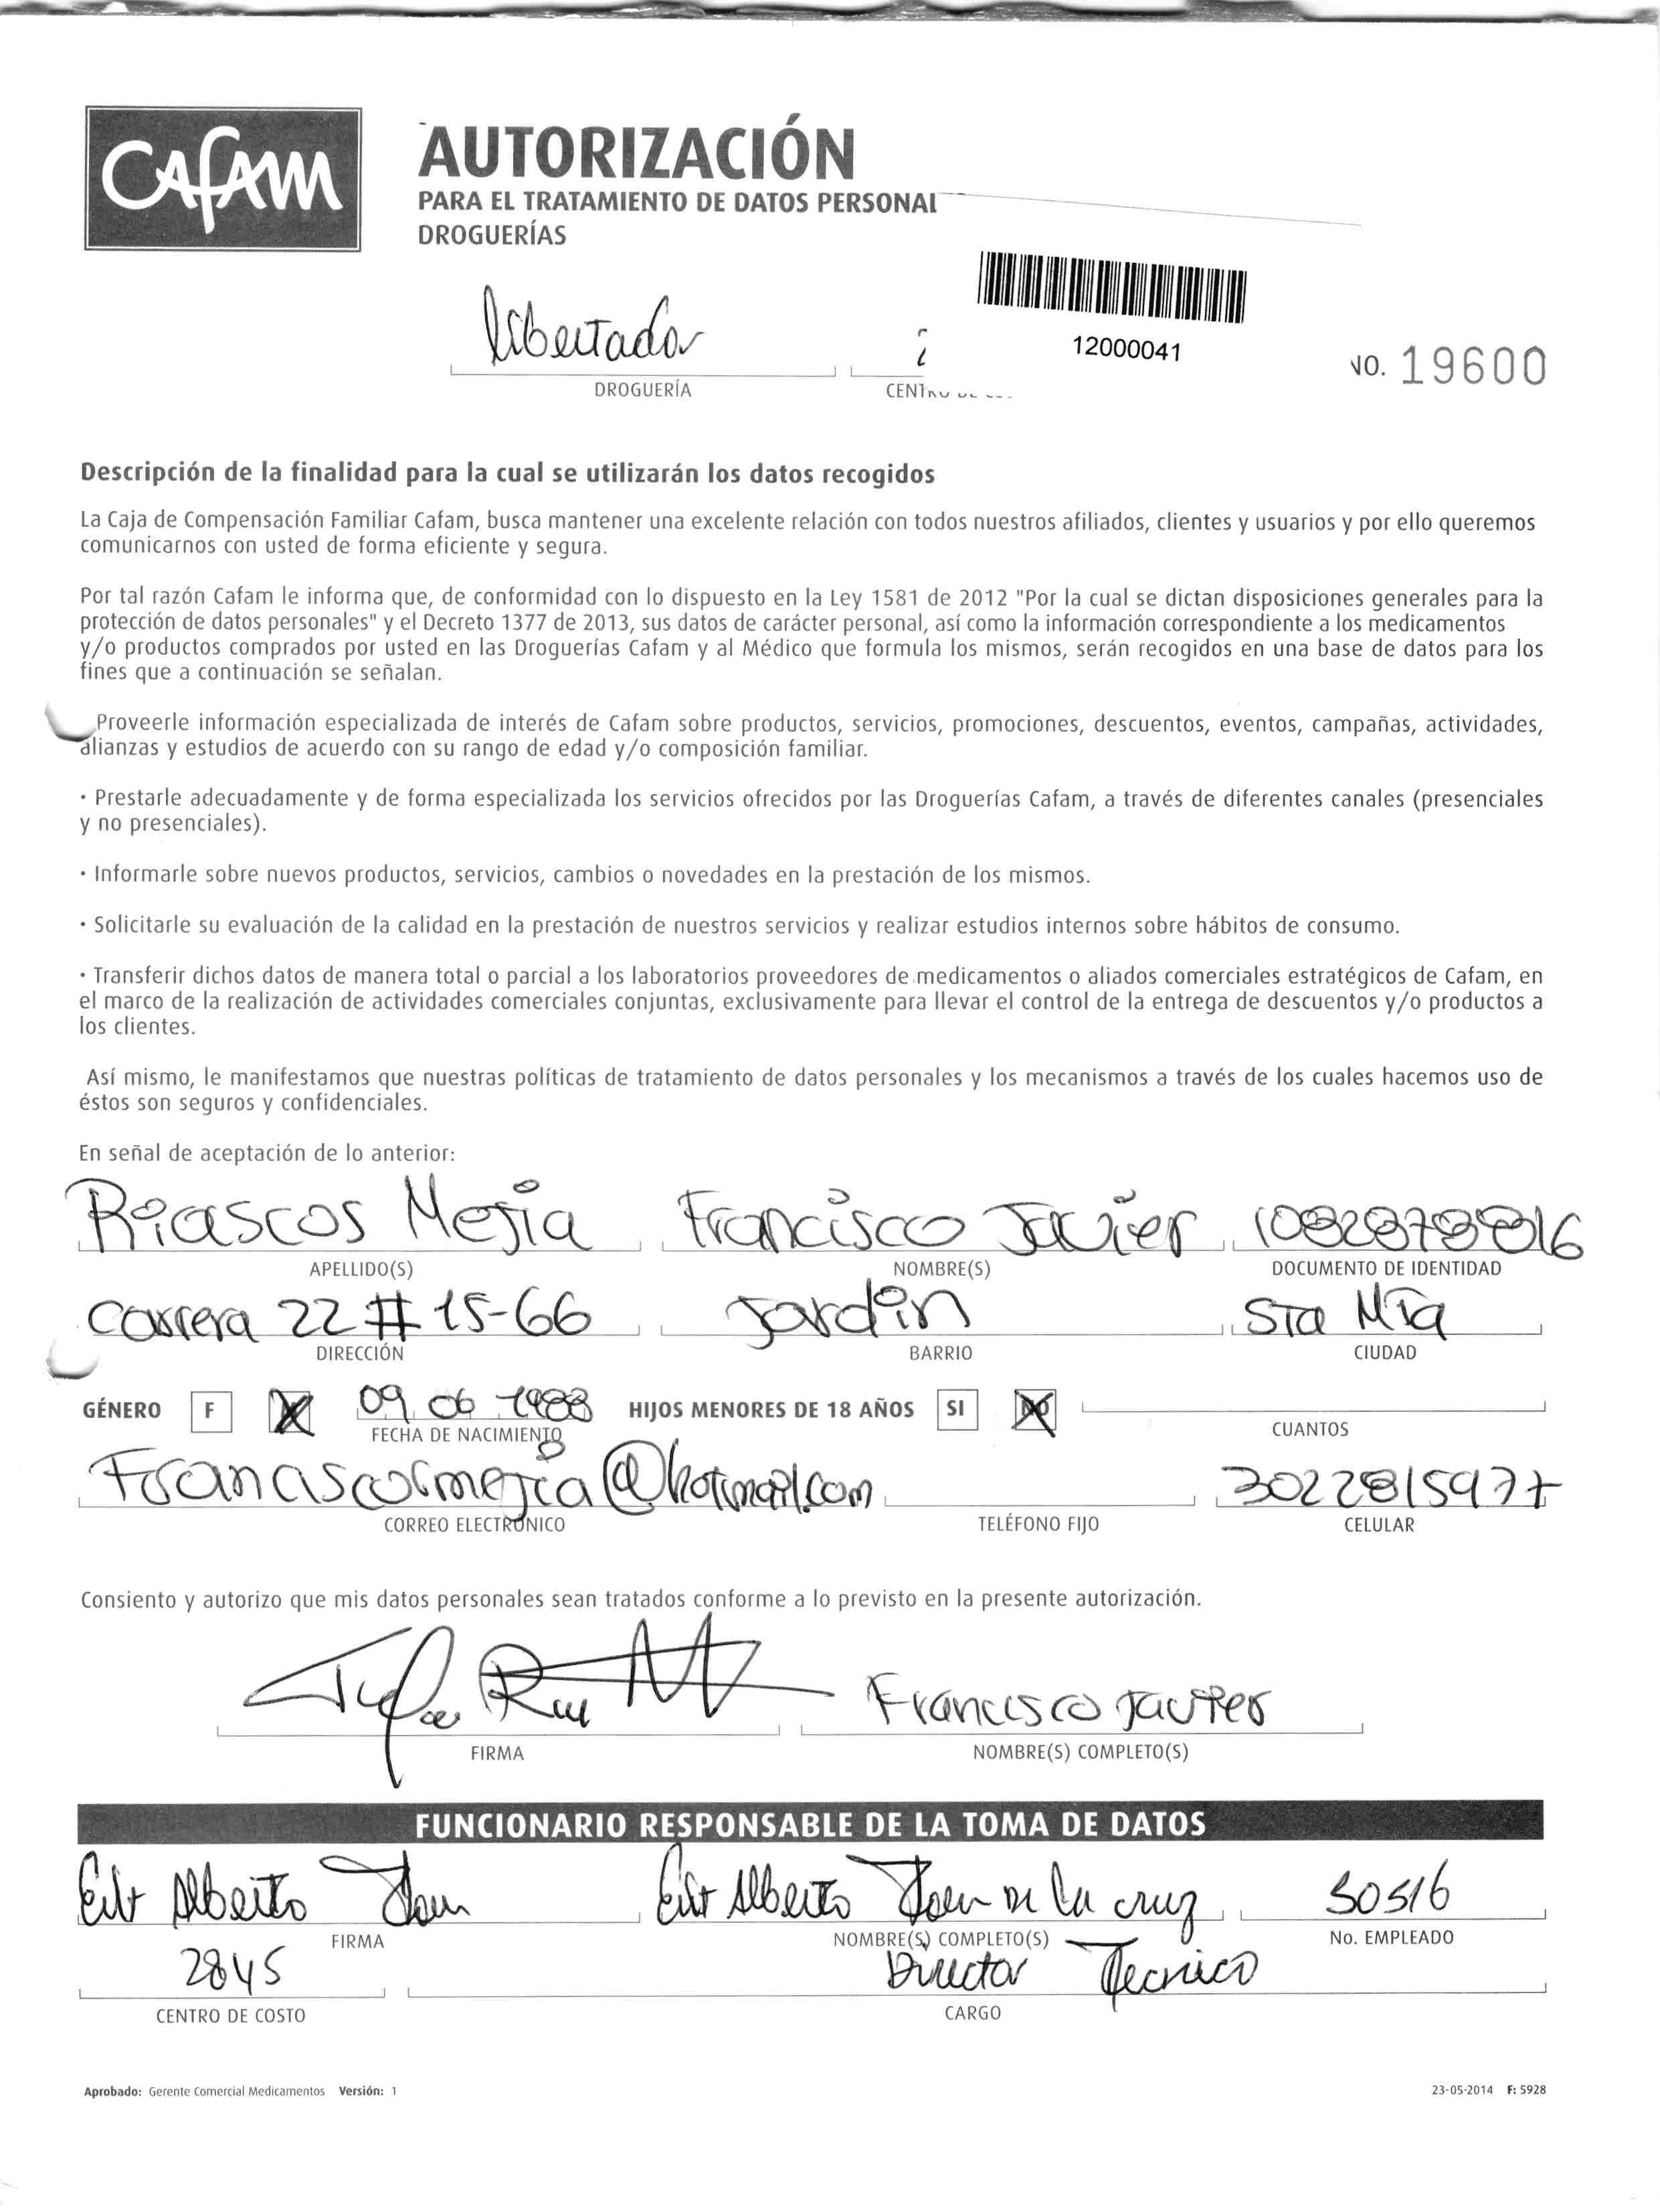 CAFAM
AUTORIZACIÓN
PARA EL TRATAMIENTO DE DATOS PERSONAL
DROGUERÍAS
libertador
12000041
No. 19600
DROGUERÍA
Descripción de la finalidad para la cual se utilizarán los datos recogidos
La Caja de Compensación Familiar Cafam, busca mantener una excelente relación con todos nuestros afiliados, clientes y usuarios y por ello queremos
comunicarnos con usted de forma eficiente y segura.
Por tal razón Cafam le informa que, de conformidad con lo dispuesto en la Ley 1581 de 2012 "Por la cual se dictan disposiciones generales para la
protección de datos personales" y el Decreto 1377 de 2013, sus datos de carácter personal, así como la información correspondiente a los medicamentos
y/o productos comprados por usted en las Droguerías Cafam y al Médico que formula los mismos, serán recogidos en una base de datos para los
fines que a continuación se señalan.
Proveerle información especializada de interés de Cafam sobre productos, servicios, promociones, descuentos, eventos, campañas, actividades,
alianzas y estudios de acuerdo con su rango de edad y/o composición familiar.
· Prestarle adecuadamente y de forma especializada los servicios ofrecidos por las Droguerías Cafam, a través de diferentes canales (presenciales
y no presenciales).
· Informarle sobre nuevos productos, servicios, cambios o novedades en la prestación de los mismos.
· Solicitarle su evaluación de la calidad en la prestación de nuestros servicios y realizar estudios internos sobre hábitos de consumo.
· Transferir dichos datos de manera total o parcial a los laboratorios proveedores de medicamentos o aliados comerciales estratégicos de Cafam, en
el marco de la realización de actividades comerciales conjuntas, exclusivamente para llevar el control de la entrega de descuentos y/o productos a
los clientes.
Así mismo, le manifestamos que nuestras políticas de tratamiento de datos personales y los mecanismos a través de los cuales hacemos uso de
éstos son seguros y confidenciales.
En señal de aceptación de lo anterior:
Riascos Mejia Francisco Javier
APELLIDO(S) NOMBRE(S) DOCUMENTO DE IDENTIDAD
Carrera 22 # 15-66 Jardin Sta Mta
DIRECCIÓN BARRIO CIUDAD
GÉNERO F 09 06 1988 HIJOS MENORES DE 18 AÑOS SI
FECHA DE NACIMIENTO CUANTOS
Franciscormejia@hotmail.com 3022815977
CORREO ELECTRÓNICO TELÉFONO FIJO CELULAR
Consiento y autorizo que mis datos personales sean tratados conforme a lo previsto en la presente autorización.
Francisco Javier
FIRMA NOMBRE(S) COMPLETO(S)
FUNCIONARIO RESPONSABLE DE LA TOMA DE DATOS
Alberto Alberto de la cruz 50516
FIRMA NOMBRE(S) COMPLETO(S) No. EMPLEADO
2845 Director Tecnico
CENTRO DE COSTO CARGO
Aprobado: Gerente Comercial Medicamentos Versión: 1 23-05-2014 F: 5928